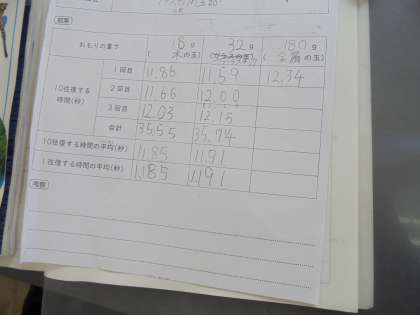 結果
おもりの重さ 18g 32g 180g
(木の玉) (ガラスの玉) (金属の玉)
10往復する時間(秒)
1回目 11.86 11.59 12.34
2回目 11.66 12.00
3回目 12.03 12.15
合計 35.55 35.74
10往復する時間の平均(秒) 11.85 11.91
1往復する時間の平均(秒) 1.185 1.191
考察